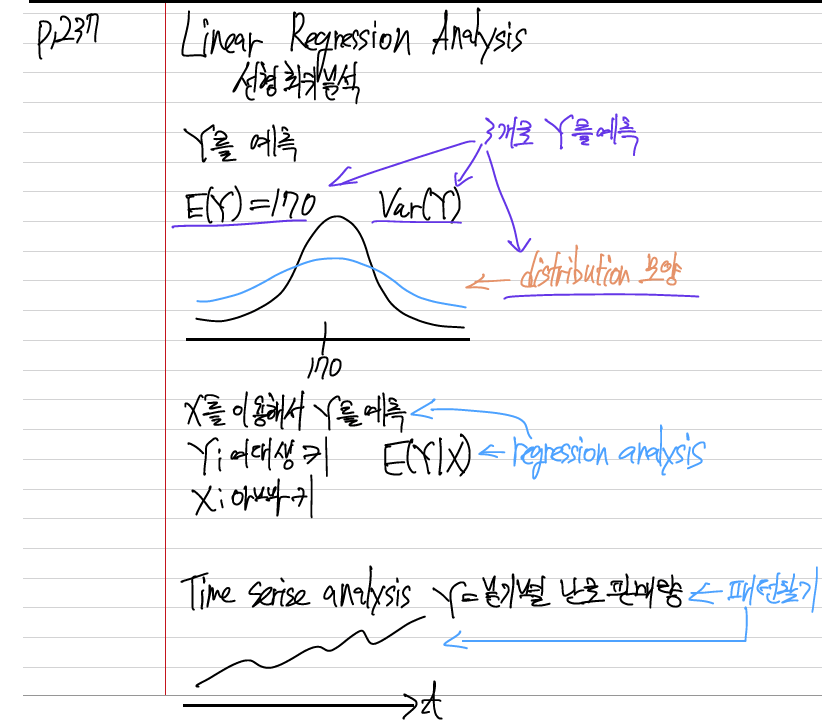 p.237
Linear Regression Analysis
선형회귀분석
Y를 예측
3개로 Y를 예측
E(Y)=170
Var(Y)
distribution 모양
170
X를 이용해서 Y를 예측
Y: 여대생 키
E(Y|X)
regression analysis
X: 아빠 키
Time serise analysis
Y=분기별 난로 판매량
패턴찾기
t